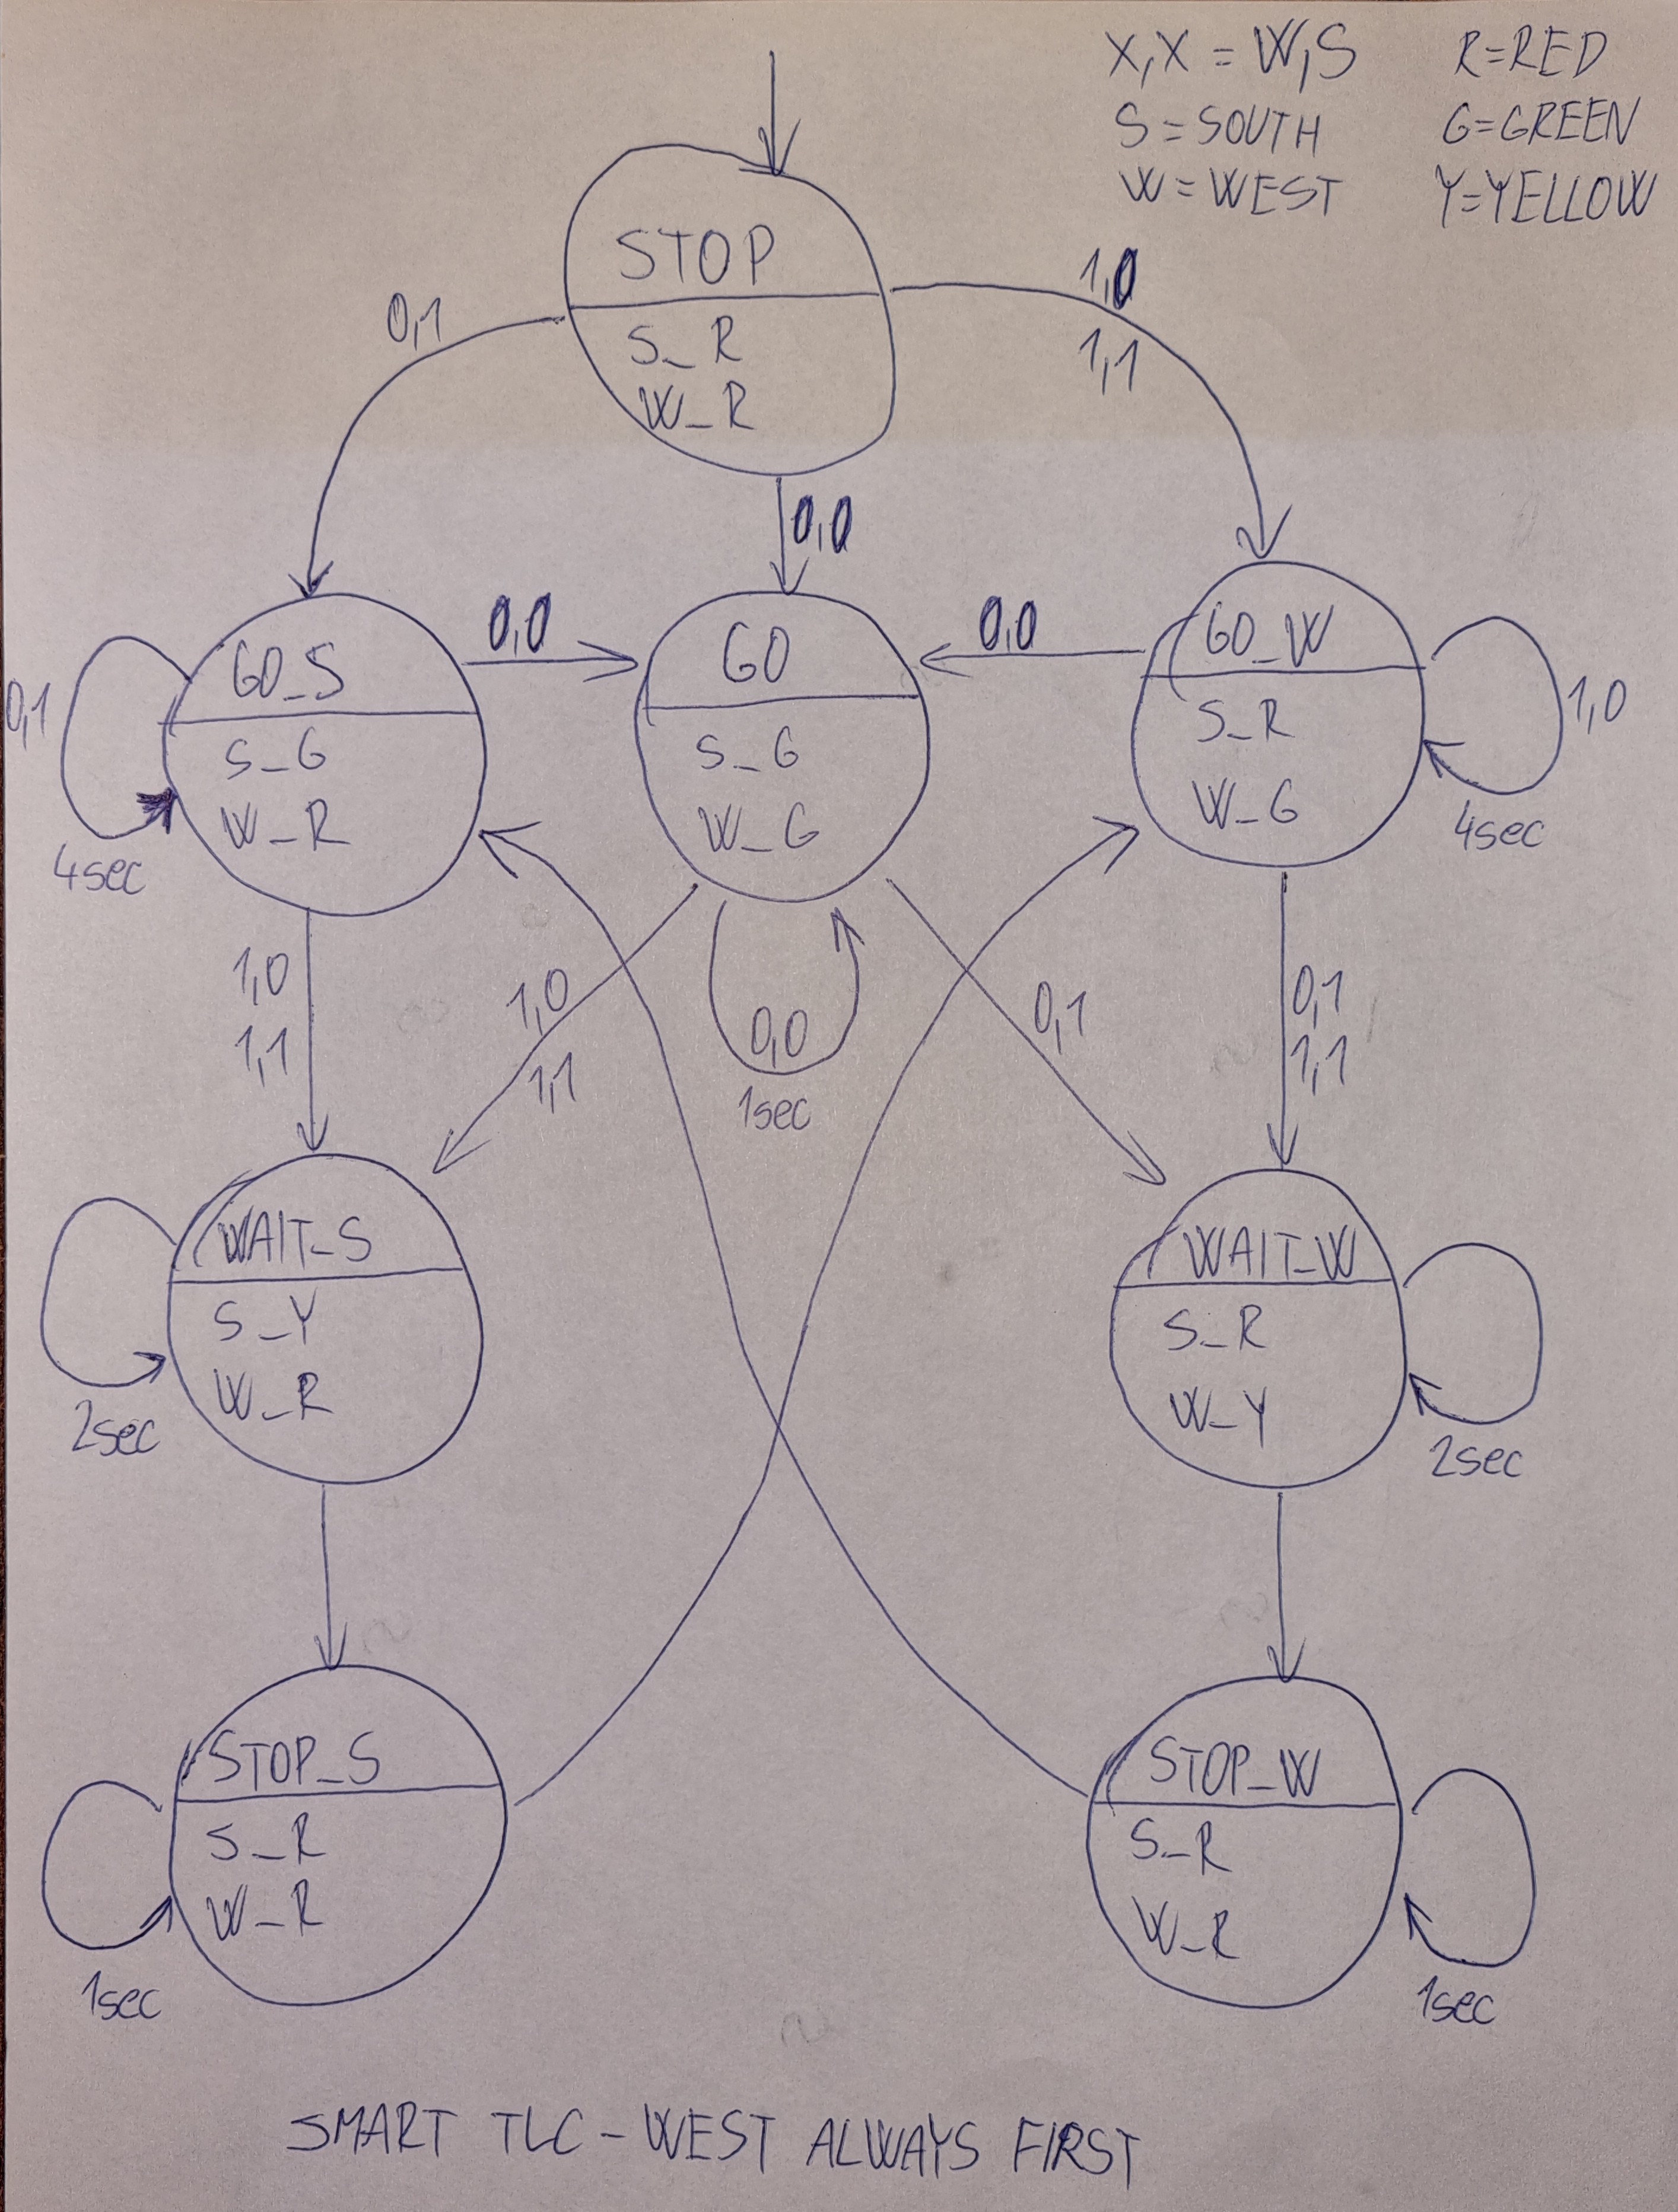 X,X = W,S
S = SOUTH
W = WEST
R=RED
G=GREEN
Y=YELLOW
STOP
S_R
W_R
0,1
1,0
1,1
0,0
GO_S
S_G
W_R
0,1
4sec
0,0
GO
S_G
W_G
0,0
GO_W
S_R
W_G
1,0
4sec
1,0
1,1
1,0
1,1
0,0
1sec
0,1
0,1
1,1
WAIT_S
S_Y
W_R
2sec
WAIT_W
S_R
W_Y
2sec
STOP_S
S_R
W_R
1sec
STOP_W
S_R
W_R
1sec
SMART TLC - WEST ALWAYS FIRST